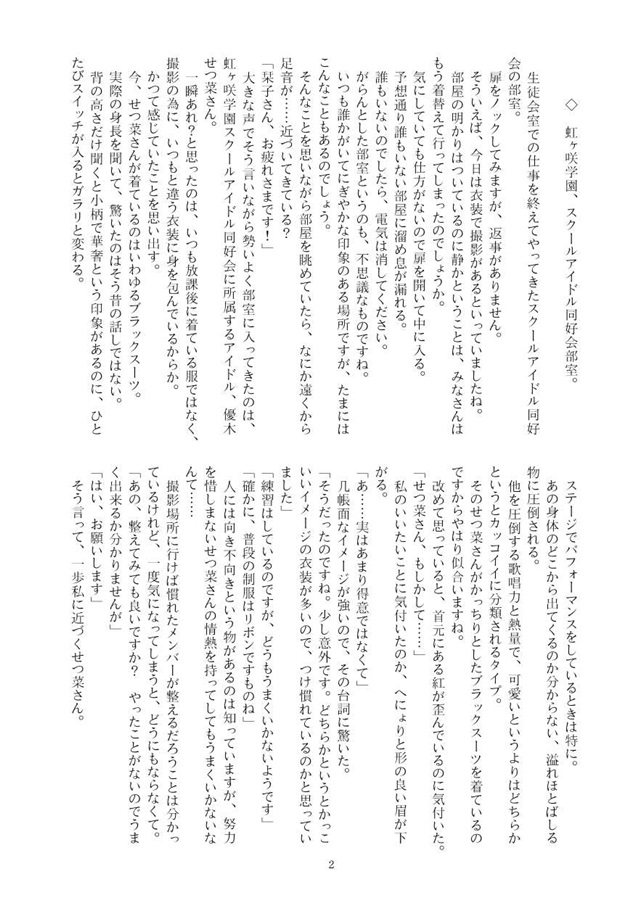 ◇　虹ヶ咲学園、スクールアイドル同好会部室。
生徒会室での仕事を終えてやってきたスクールアイドル同好
会の部室。
扉をノックしてみますが、返事がありません。
そういえば、今日は衣装で撮影があるといっていましたね。
部屋の明かりはついているのに静かということは、みなさんは
もう着替えて行ってしまったのでしょうか。
気にしていても仕方がないので扉を開いて中に入る。
予想通り誰もいない部屋に溜め息が漏れる。
誰もいないのでしたら、電気は消してください。
がらんとした部室というのも、不思議なものですね。
いつも誰かがいてにぎやかな印象のある場所ですが、たまには
こんなこともあるのでしょう。
そんなことを思いながら部屋を眺めていたら、なにか遠くから
足音が……近づいてきている？
「栞子さん、お疲れさまです！」
大きな声でそう言いながら勢いよく部室に入ってきたのは、
虹ヶ咲学園スクールアイドル同好会に所属するアイドル、優木
せつ菜さん。
一瞬あれ？と思ったのは、いつも放課後に着ている服ではなく、
撮影の為に、いつもと違う衣装に身を包んでいるからか。
かつて感じていたことを思い出す。
今、せつ菜さんが着ているのはいわゆるブラックスーツ。
実際の身長を聞いて、驚いたのはそう昔の話しではない。
背の高さだけ聞くと小柄で華奢という印象があるのに、ひと
たびスイッチが入るとガラリと変わる。
ステージでパフォーマンスをしているときは特に。
あの身体のどこから出てくるのか分からない、溢れほとばしる
物に圧倒される。
他を圧倒する歌唱力と熱量で、可愛いというよりはどちらか
というとカッコイイに分類されるタイプ。
そのせつ菜さんがかっちりとしたブラックスーツを着ているの
ですからやはり似合いますね。
改めて思っていると、首元にある紅が歪んでいるのに気付いた。
「せつ菜さん、もしかして……」
私のいいたいことに気付いたのか、へにょりと形の良い眉が下
がる。
「あ……実はあまり得意ではなくて」
几帳面なイメージが強いので、その台詞に驚いた。
「そうだったのですね。少し意外です。どちらかというとかっこ
いいイメージの衣装が多いので、つけ慣れているのかと思ってい
ました」
「練習はしているのですが、どうもうまくいかないようです」
「確かに、普段の制服はリボンですものね」
人には向き不向きという物があるのは知っていますが、努力
を惜しまないせつ菜さんの情熱を持ってしてもうまくいかないな
んて……
撮影場所に行けば慣れたメンバーが整えるだろうことは分かっ
ているけれど、一度気になってしまうと、どうにもならなくて。
「あの、整えてみても良いですか？　やったことがないのでうま
く出来るか分かりませんが」
「はい、お願いします」
そう言って、一歩私に近づくせつ菜さん。
2